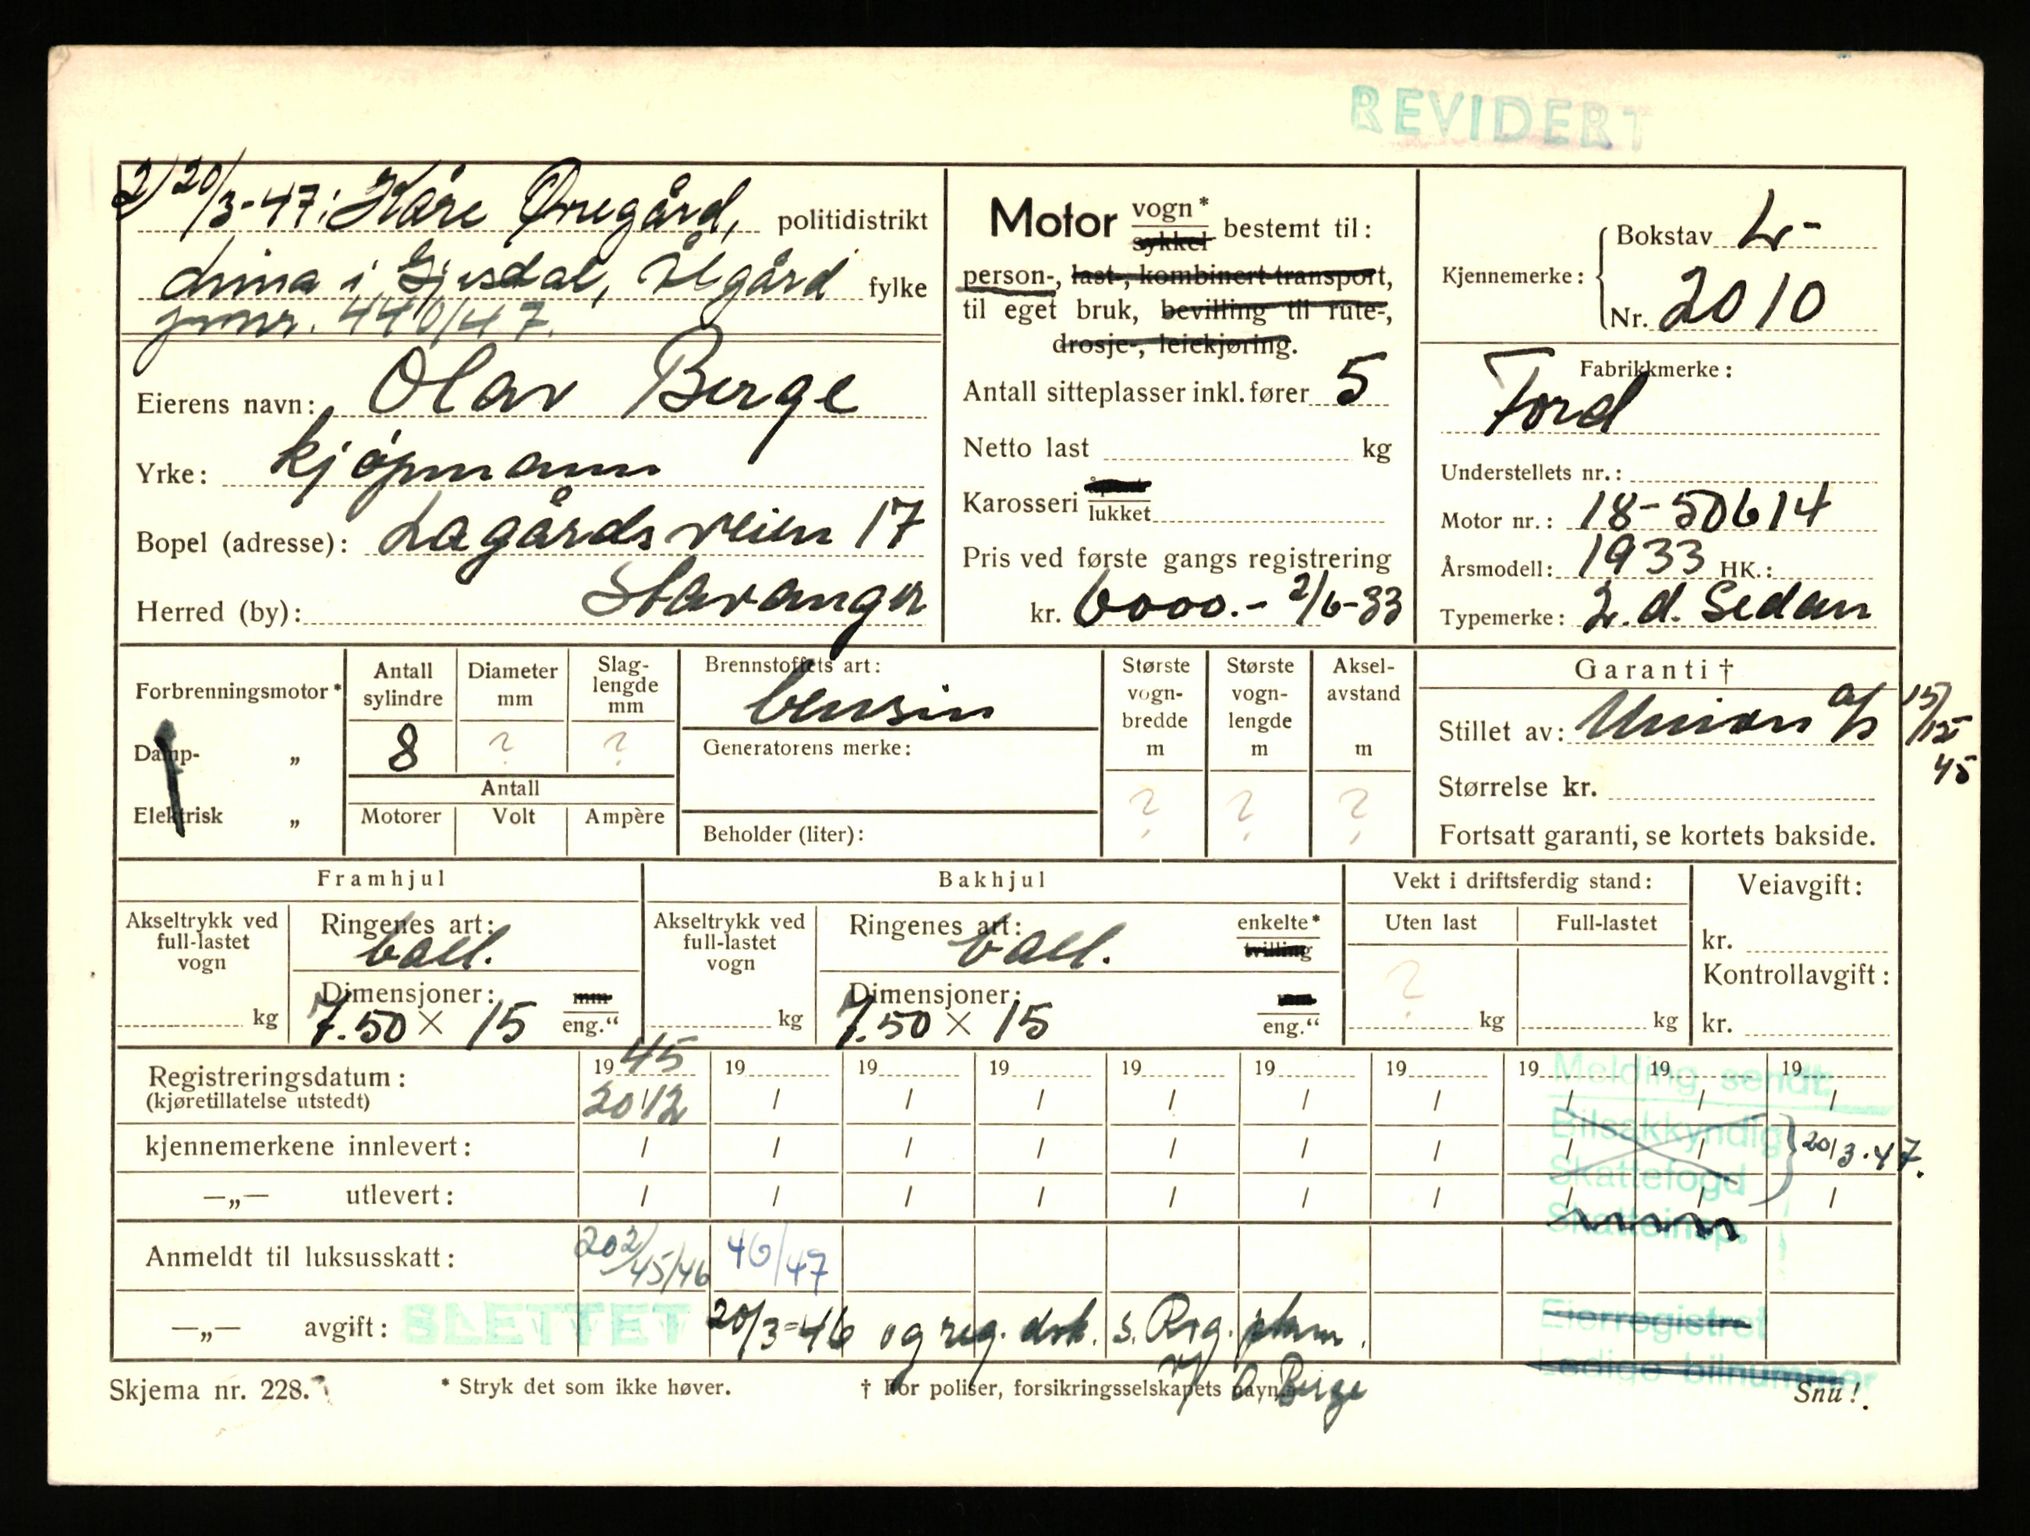 REVIDERT
2) 20/3-47: Kåre Ørregård, politidistrikt
drina i Gjesdal, Ålgård fylke
jrnr. 440/47.
Eierens navn: Olav Berge
Yrke: kjøpmann
Bopel (adresse): Lagårdsveien 17
Herred (by): Stavanger
Motor vogn* bestemt til:
sykkel
person-, last-, kombinert transport,
til eget bruk, bevilling til rute-,
drosje-, leiekjøring.
Antall sitteplasser inkl. fører 5
Netto last kg
Karosseri åpent
lukket
Pris ved første gangs registrering
kr. 6000.- 2/6-33
Kjennemerke: Bokstav L-
Nr. 2010
Fabrikkmerke:
Ford
Understellets nr.:
Motor nr.: 18-50614
Årsmodell: 1933 HK.:
Typemerke: 2.d. Sedan
Forbrenningsmotor*
Damp- „
Elektrisk „
Antall sylindre
8
Diameter mm
?
Slag-lengde mm
?
Antall
Motorer Volt Ampère
Brennstoffets art:
bensin
Generatorens merke:
Beholder (liter):
Største vogn-bredde m
?
Største vogn-lengde m
?
Aksel-avstand m
?
Garanti †
Stillet av: Union A/S 15/12 45
Størrelse kr.
Fortsatt garanti, se kortets bakside.
Framhjul
Akseltrykk ved full-lastet vogn
kg
Ringenes art:
ball.
Dimensjoner: mm
7.50 × 15 eng.“
Bakhjul
Akseltrykk ved full-lastet vogn
kg
Ringenes art: enkelte*
ball. tvilling
Dimensjoner: mm
7.50 × 15 eng.“
Vekt i driftsferdig stand:
Uten last Full-lastet
?
kg kg
Veiavgift:
kr.
Kontrollavgift:
kr.
Registreringsdatum: 1945 19 19 19 19 19 19 19 19 19
(kjøretillatelse utstedt) 20/12 / / / / / / / / /
kjennemerkene innlevert: / / / / / / / / / /
—„— utlevert: / / / / / / / / / /
Melding sendt:
Bilsakkyndig
Skattefogd
20/3.47.
Skatteinsp.
Anmeldt til luksusskatt: 202/45/46 46/47
—„— avgift: SLETTET 20/3=46 og reg. dok. s. Reg. plam.
v/ O. Berge
Eierregistret
Ledige bilnummer
Skjema nr. 228.
* Stryk det som ikke høver.
† For poliser, forsikringsselskapets navn.
Snu!